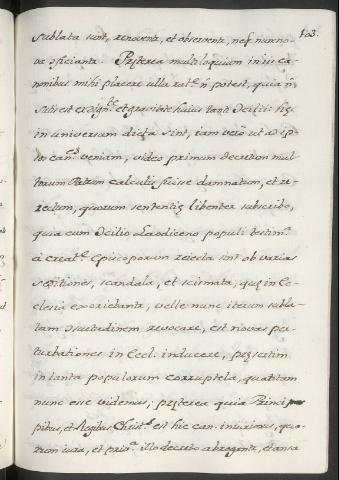 123.
sublata sunt, renoventr, et observentr, nec nunno-
ve oficiantr. Pręterea multiloquium in iis ca-
nonibus mihi placere ulla ratne ñ potest, quia ñ
satis est ex dignte et gravitate huius tanti Ɔcilii: hęc
in universum dicta sint, iam vero ut ad ip-
tos canes veniam, video primum decretum mul-
torum Patrum calculis fuisse damnatum, et re-
iectum, quorum sententię libenter subscribo,
quia cum Ɔcilio Laodiceno populi testima
à creatne Episcoporum reiecta sint ob varias
seditiones, scandala, et scismata, quę in Ec-
clesia exoriebantr, velle nunc iterum subla-
tam Ɔsuetudinem revocare, est novas per-
turbationes in Eccl. inducere, pręsertim
in tanta populorum corruptela, quantam
nunc esse videmus; pręterea quia Princi
pibus, et Regibus Christis est hic can. iniurious, quo-
rum iura, et priva illo decreto abrogantr, et ansa